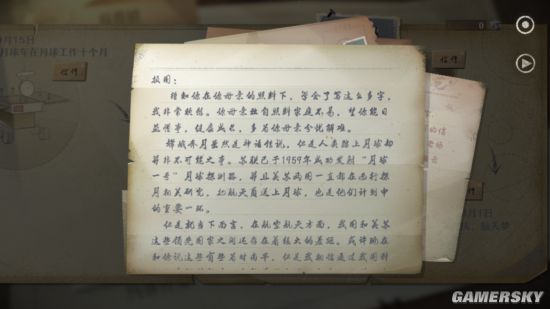 月15日
月球车在月球工作十个月
信件
0
信件
报国:
得知你在你母亲的照料下,学会了写这么多字,
我非常欣慰。你母亲独自照料家庭不易,望你能日
益懂事,促喜成名,多为你母亲分忧解难。
嫦娥奔月虽然是神话传说,但是人类踏上月球却
并非不可能之事。苏联已于1959年成功发射“月球
一号”月球探测器,并且美苏两国一直都在进行探
月相关研究,把航天员送上月球,也是他们计划中
的重要一环。
但是就当下而言,在航空航天方面,我国和美苏
这些领先国家之间还存在着较大的差距。或许现在
和你说这些有些为时尚早,但是我相信通过我国科
月1日
航天梦
GAMERSKY